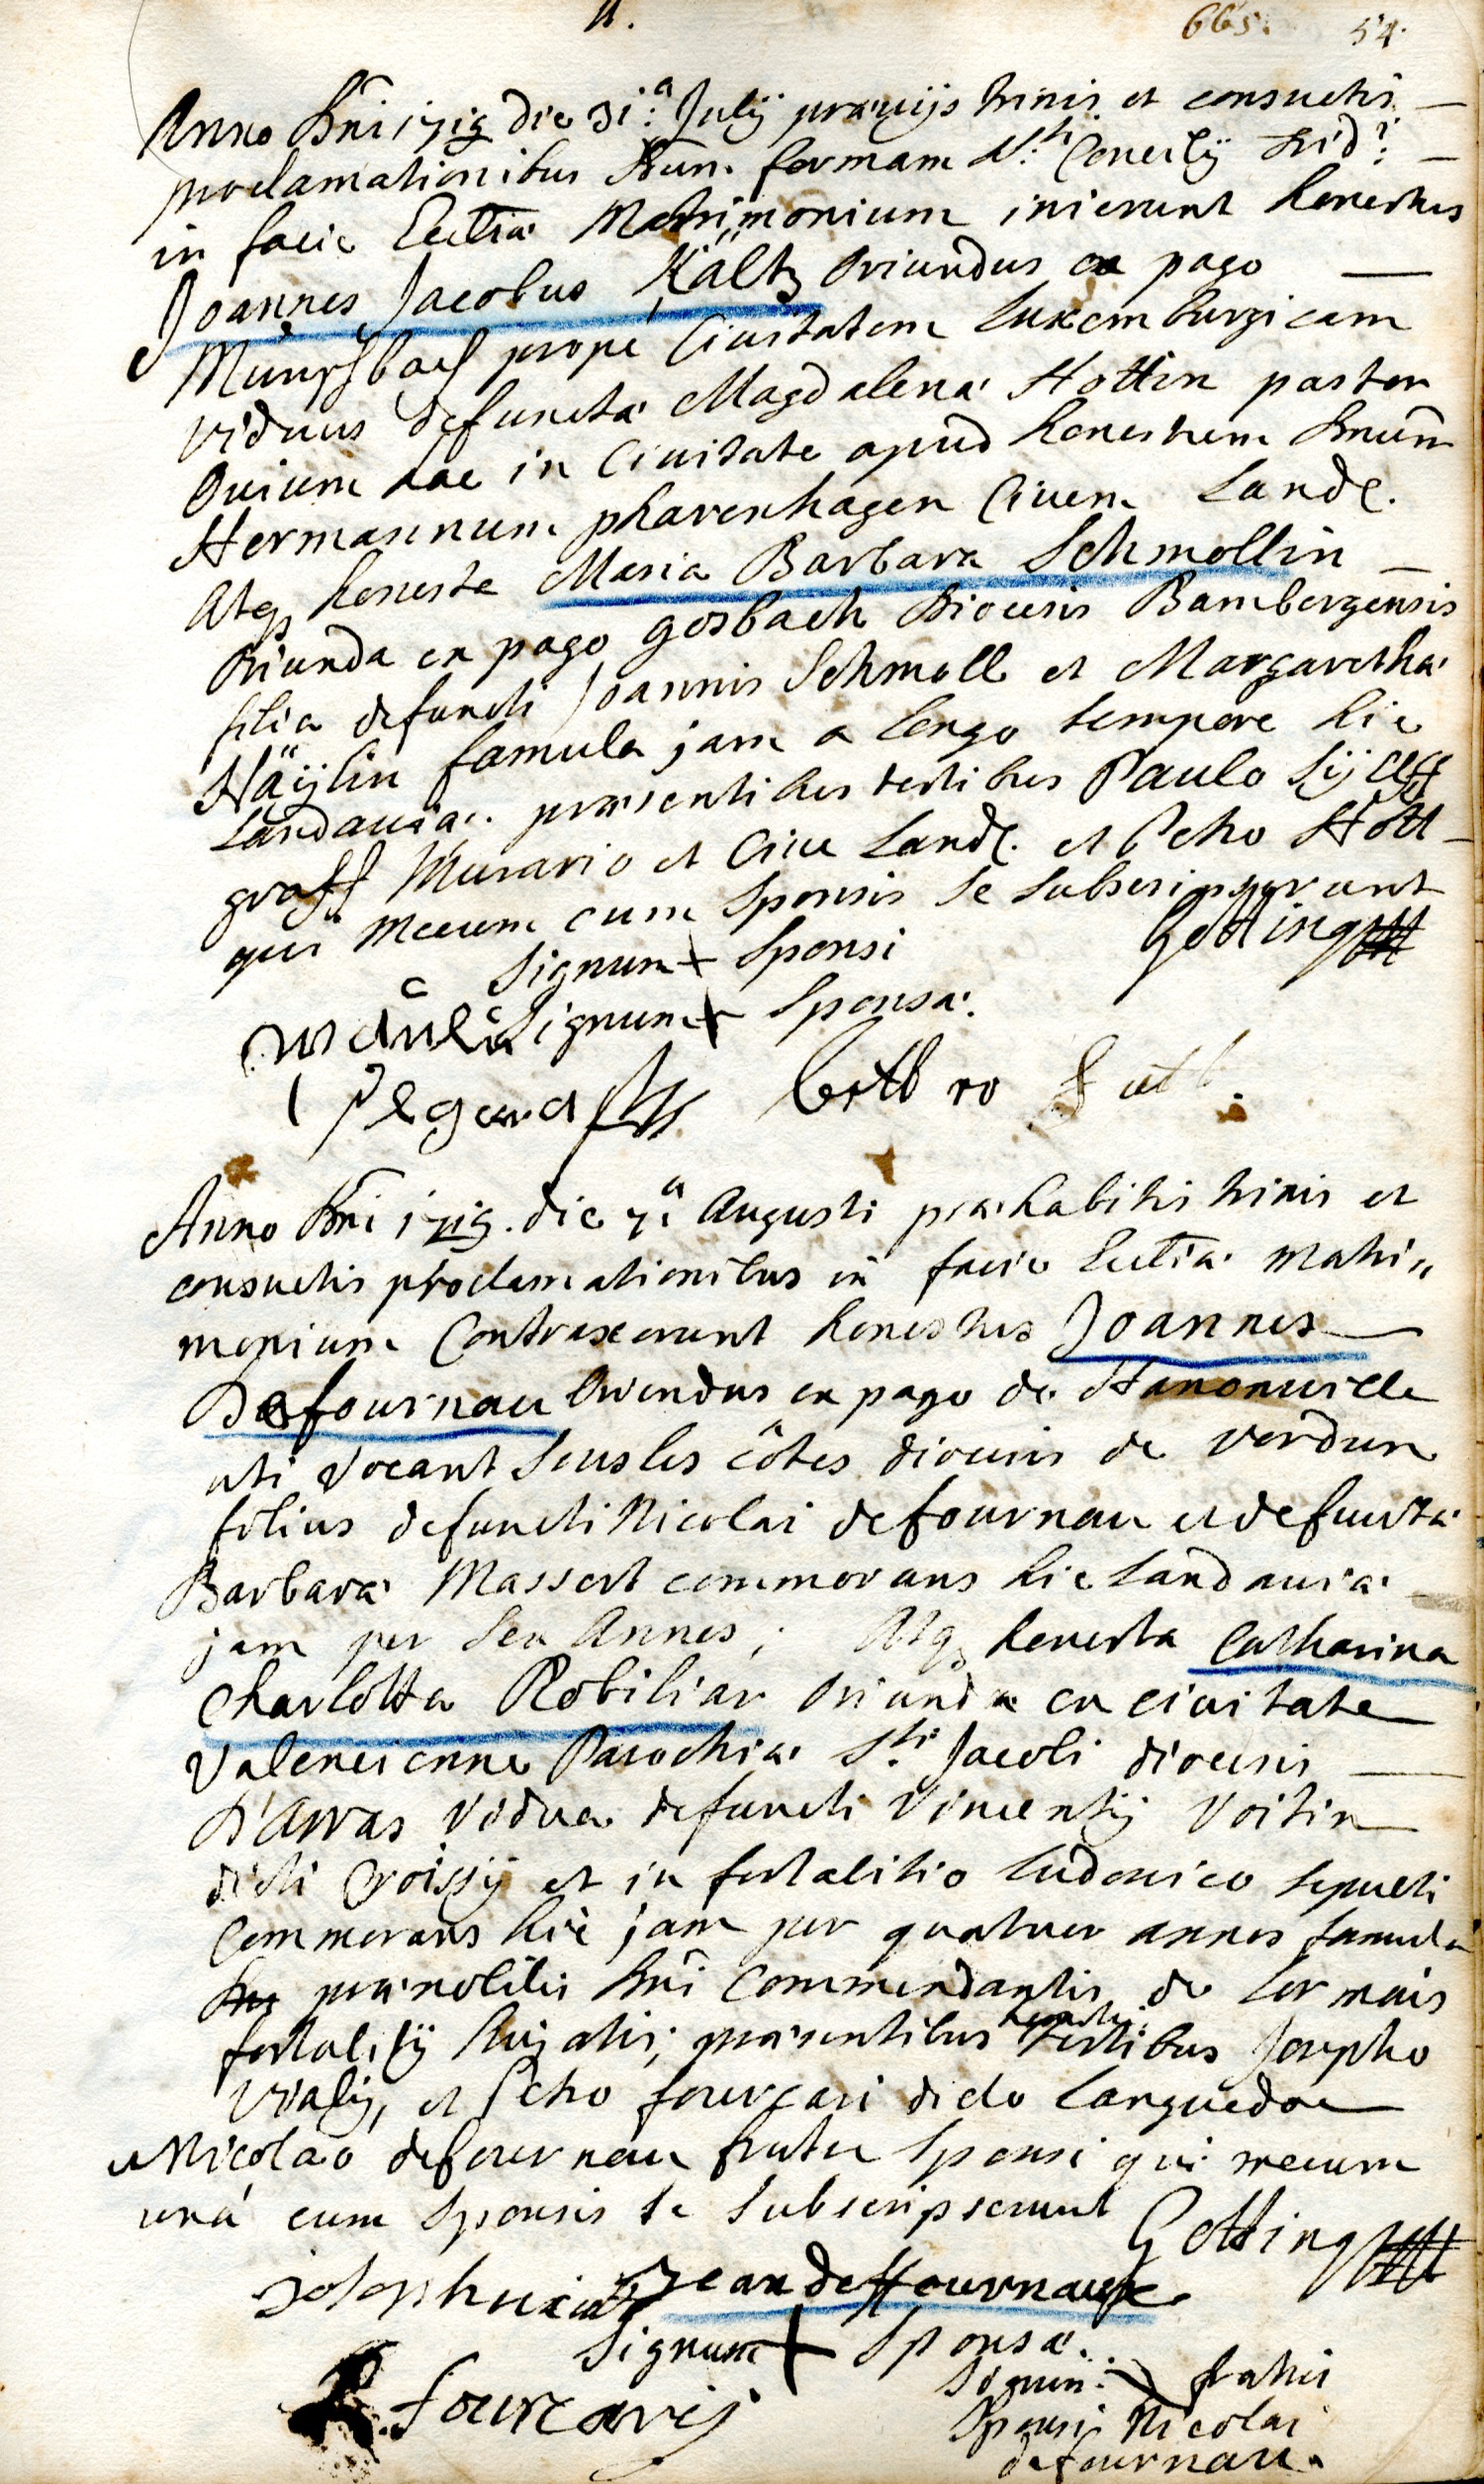 11.
665. 54.
Anno Dni 1719 die 31.a Julÿ prævijs trinis et consuetis
proclamationibus Secun. formam S.sti Concilÿ Trid.i
in facie Eccliæ Matrimonium inierunt honestus
Joannes Jacobus Kältz Oriundus ex pago
prope Civitatem Luxemburgicam
viduus defunctæ Magdalenæ Hottin pastor
Ovium hac in Civitate apud honestum Dnum
Hermannum pharenhagen Civem Land.
Atq honeste Maria Barbara Schmollin
Oriunda ex pago gosbach Diocesis Bambergensis
filia defuncti Joannis Schmoll et Margarethæ
Häÿlin famula jam a longo tempore hic
Landaviæ. præsentibus testibus Paulo
graff Murario et Cive Land. et Petro Hott
qui mecum cum Sponsis se subscripserunt
Signum + Sponsi
Gotting
Signum + Sponsæ.
Anno Dni 1719. die 7.a Augusti præhabitis trinis et
consuetis proclamationibus in facie Eccliæ matri„
monium Contraxerunt honestus Joannes
Defournau Oriundus ex pago de Hanonville
uti vocant Sous les côtes diocesis de verdun
filius defuncti Nicolai defournau et defunctæ
Barbaræ Massert commorans hic Landaviæ
jam per sex Annos; Atq honesta Catharina
Charlotta Robiliar Oriunda ex civitate
Valencienne Parochiæ S.ti Jacobi diocesis
D'Arras Vidua defuncti Vincentÿ Voitin
dicti Croissÿ et in fortalitio Ludovico sepulti
Commorans hic jam per quatuor annos famula
prænobilis Dni Commendantis de Cormais
fortalitÿ hujatis; præsentibus testibus Josepho
Vialÿ, et Petro fourcari dicto Languedoc
Nicolao defournau fratre Sponsi qui mecum
unà cum Sponsis se subscripserunt
Gotting
Jean deffournaux
Signum + Sponsæ.
Signum fratris
Sponsi Nicolai
defournau.